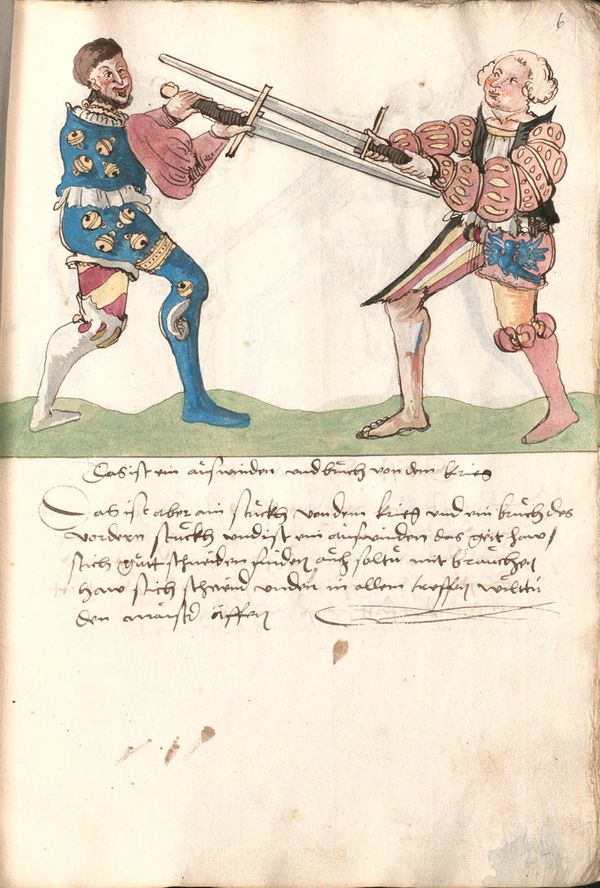 6
Das ist ein aüswinden und brüch von dem krieg
Das ist aber ain stückh von dem krieg und ein brüch des
vordern stückh und ist ein aüswinden das gert haw
stich güt schneiden finden aüch soltü mit braüchen
haw stich schnid unden in allem treffen wiltü
den maister äffen